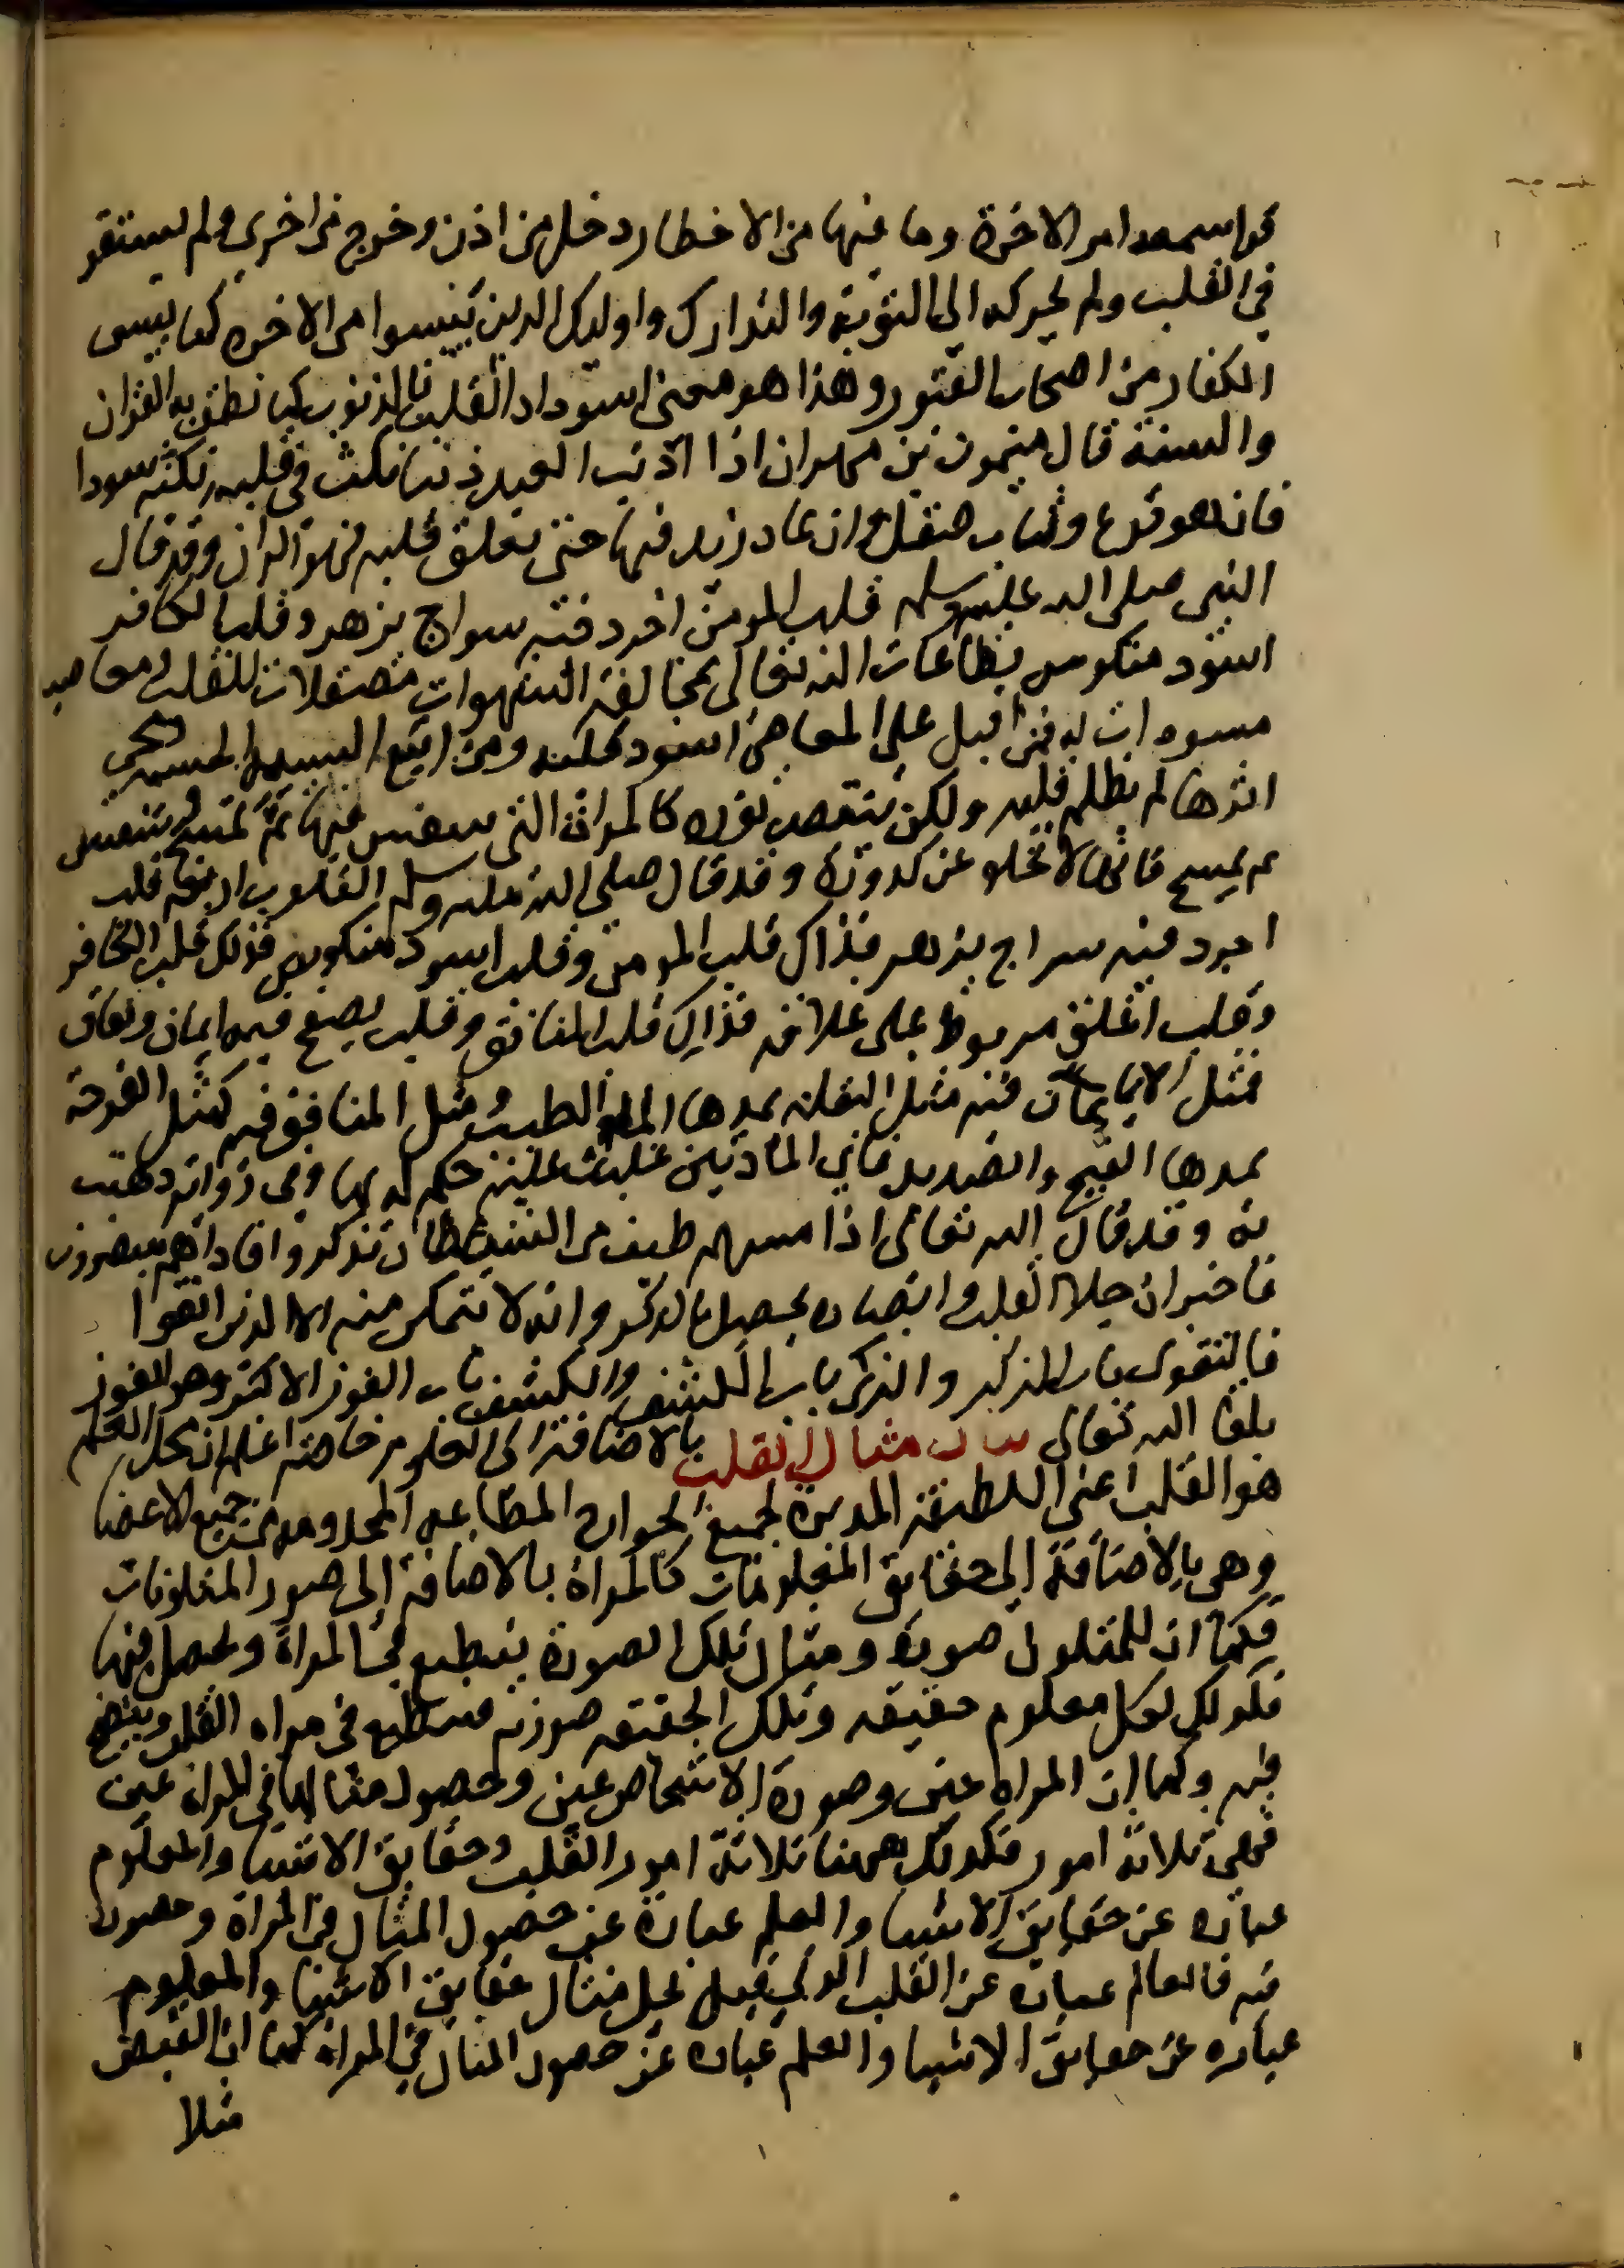 قواسمعه امر الاخرة وما فيها من الاخطار دخل من اذن وخرج من اخرى ولم يستقر
في القلب ولم يحركه الى التوبة والتدارك واوليك الذين يئسوا من الاخره كما يئس
الكفار من اصحاب القبور وهذا هو معنى اسوداد القلب بالذنوب كما نطق به القران
والسنة قال ميمون بن مهران اذا اذنب العبد ذنبا نكث في قلبه نكته سودا
فان هو نزع وتاب صقل وان عاد زيد فيها حتى تعلق قلبه فهو الران وقد قال
النبي صلى الله عليه وسلم قلب المومن اجرد فيه سراج يزهر وقلب الكافر
اسود منكوس بطاعات الله تعالى بمخالفة الشهوات مصقلات للقلب ومعاصيه
مسودات له فمن اقبل على المعاصي اسود قلبه ومن اتبع السيئة الحسنة ومحي
اثرها لم يظلم قلبه ولكن ينقص نوره كالمراة التي يتنفس فيها ثم تمسح ويتنفس
ثم يمسح فانها لا تخلو عن كدورة وقد قال صلى الله عليه وسلم القلوب اربعة قلب
اجرد فيه سراج يزهر فذاك قلب المومن وقلب اسود منكوس فذلك قلب الكافر
وقلب اغلف مربوط على غلافه فذاك قلب المنافق وقلب يصفح فيه ايمان ونفاق
فمثل الايمان فيه مثل البقلة يمدها الماء الطيب ومثل المنافق فيه كمثل القرحة
يمدها القيح والصديد فاي المادتين غلبت عليه حكم له بها وفي رواية ذهبت
به وقد قال الله تعالى اذا مسهم طيف من الشيطان تذكروا فاذاهم مبصرون
فاخبر ان جلا القلب وابصاره يحصل بالذكر وانه لا يتمكن منه الا الذين اتقوا
فالتقوى باب الذكر والذكر باب الكشف والكشف باب الفوز الاكبر وهو الفوز
بلقا الله تعالى بيان مثال القلب بالاضافة الى العلوم خاصة اعلم ان محل العلم
هو القلب اعني اللطيفة المدبرة لجميع الجوارح المطاعه المخدومه من جميع الاعضا
وهي بالاضافة الى حقايق المعلومات كالمراة بالاضافة الى صور المتلونات
فكما ان للمتلون صورة ومثال تلك الصورة ينطبع في المراة ويحصل فيها
فكذلك لكل معلوم حقيقه وتلك الحقيقه صورته فتنطبع في مراه القلب ويتضح
فيه وكما ان المراه عين وصورة الاشخاص عين وحصول مثالها في المراة عين
فهي ثلاثة امور فكذلك ههنا ثلاثة امور القلب وحقايق الاشيا والمعلوم
عبارة عن حقايق الاشيا والعلم عبارة عن حصول المثال في المراة وحصوله
فيه فالعالم عباره عن القلب الذي فيه يحل مثال حقايق الاشيا والمعلوم
عباره عن حقايق الاشيا والعلم عباره عن حصول المثال في المراه كما ان القبض
مثلا